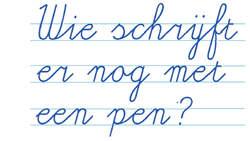 Wie schrijft
er nog met
een pen?